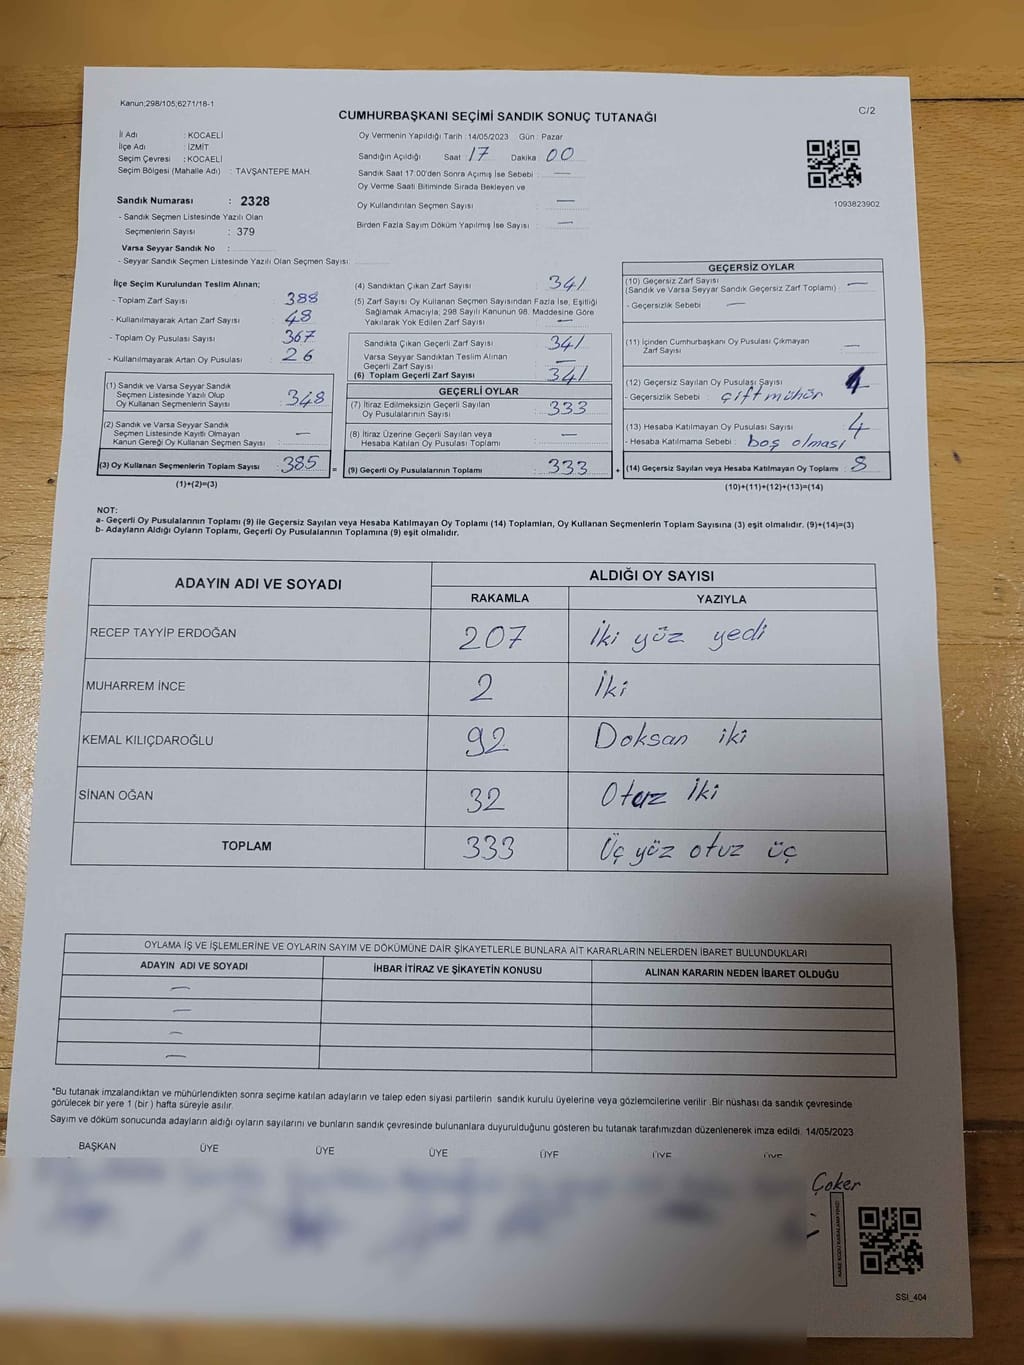 Kanun;298/105;6271/18-1
C/2
CUMHURBAŞKANI SEÇİMİ SANDIK SONUÇ TUTANAĞI
İl Adı : KOCAELİ
İlçe Adı : İZMİT
Seçim Çevresi : KOCAELİ
Seçim Bölgesi (Mahalle Adı) : TAVŞANTEPE MAH.
Sandık Numarası : 2328
- Sandık Seçmen Listesinde Yazılı Olan
Seçmenlerin Sayısı : 379
Varsa Seyyar Sandık No :
- Seyyar Sandık Seçmen Listesinde Yazılı Olan Seçmen Sayısı:
Oy Vermenin Yapıldığı Tarih : 14/05/2023 Gün : Pazar
Sandığın Açıldığı Saat : 17 Dakika : 00
Sandık Saat 17:00'den Sonra Açımış İse Sebebi : —
Oy Verme Saati Bitiminde Sırada Bekleyen ve
Oy Kullandırılan Seçmen Sayısı : —
Birden Fazla Sayım Döküm Yapılmış İse Sayısı : —
1093823902
İlçe Seçim Kurulundan Teslim Alınan;
- Toplam Zarf Sayısı : 388
- Kullanılmayarak Artan Zarf Sayısı : 48
- Toplam Oy Pusulası Sayısı : 367
- Kullanılmayarak Artan Oy Pusulası : 26
(1) Sandık ve Varsa Seyyar Sandık
Seçmen Listesinde Yazılı Olup
Oy Kullanan Seçmenlerin Sayısı : 348
(2) Sandık ve Varsa Seyyar Sandık
Seçmen Listesinde Kayıtlı Olmayan
Kanun Gereği Oy Kullanan Seçmen Sayısı : —
(3) Oy Kullanan Seçmenlerin Toplam Sayısı : 385 =
(1)+(2)=(3)
(4) Sandıktan Çıkan Zarf Sayısı : 341
(5) Zarf Sayısı Oy Kullanan Seçmen Sayısından Fazla İse, Eşitliği
Sağlamak Amacıyla; 298 Sayılı Kanunun 98. Maddesine Göre
Yakılarak Yok Edilen Zarf Sayısı : —
Sandıkta Çıkan Geçerli Zarf Sayısı : 341
Varsa Seyyar Sandıktan Teslim Alınan
Geçerli Zarf Sayısı : —
(6) Toplam Geçerli Zarf Sayısı : 341
GEÇERLİ OYLAR
(7) İtiraz Edilmeksizin Geçerli Sayılan
Oy Pusulalarının Sayısı : 333
(8) İtiraz Üzerine Geçerli Sayılan veya
Hesaba Katılan Oy Pusulası Toplamı : —
(9) Geçerli Oy Pusulalarının Toplamı : 333 +
GEÇERSİZ OYLAR
(10) Geçersiz Zarf Sayısı : —
(Sandık ve Varsa Seyyar Sandık Geçersiz Zarf Toplamı)
- Geçersizlik Sebebi : —
(11) İçinden Cumhurbaşkanı Oy Pusulası Çıkmayan
Zarf Sayısı : —
(12) Geçersiz Sayılan Oy Pusulası Sayısı : 4
- Geçersizlik Sebebi : çift mühür
(13) Hesaba Katılmayan Oy Pusulası Sayısı : 4
- Hesaba Katılmama Sebebi : boş olması
(14) Geçersiz Sayılan veya Hesaba Katılmayan Oy Toplamı : 8
(10)+(11)+(12)+(13)=(14)
NOT:
a- Geçerli Oy Pusulalarının Toplamı (9) ile Geçersiz Sayılan veya Hesaba Katılmayan Oy Toplamı (14) Toplamları, Oy Kullanan Seçmenlerin Toplam Sayısına (3) eşit olmalıdır. (9)+(14)=(3)
b- Adayların Aldığı Oyların Toplamı, Geçerli Oy Pusulalarının Toplamına (9) eşit olmalıdır.
ADAYIN ADI VE SOYADI
ALDIĞI OY SAYISI
RAKAMLA YAZIYLA
RECEP TAYYİP ERDOĞAN 207 İki yüz yedi
MUHARREM İNCE 2 İki
KEMAL KILIÇDAROĞLU 92 Doksan iki
SİNAN OĞAN 32 Otuz İki
TOPLAM 333 Üç yüz otuz üç
OYLAMA İŞ VE İŞLEMLERİNE VE OYLARIN SAYIM VE DÖKÜMÜNE DAİR ŞİKAYETLERLE BUNLARA AİT KARARLARIN NELERDEN İBARET BULUNDUKLARI
ADAYIN ADI VE SOYADI İHBAR İTİRAZ VE ŞİKAYETİN KONUSU ALINAN KARARIN NEDEN İBARET OLDUĞU
—
—
—
—
*Bu tutanak imzalandıktan ve mühürlendikten sonra seçime katılan adayların ve talep eden siyasi partilerin sandık kurulu üyelerine veya gözlemcilerine verilir .Bir nüshası da sandık çevresinde
görülecek bir yere 1 (bir ) hafta süreyle asılır.
Sayım ve döküm sonucunda adayların aldığı oyların sayılarını ve bunların sandık çevresinde bulunanlara duyurulduğunu gösteren bu tutanak tarafımızdan düzenlenerek imza edildi. 14/05/2023
BAŞKAN ÜYE ÜYE ÜYE ÜYE ÜYE ÜYE
Çoker
SSI_404